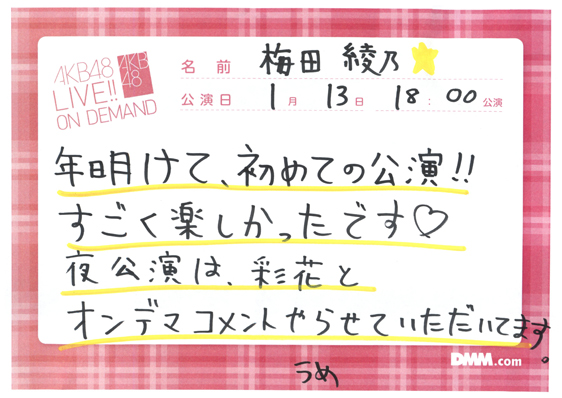 AKB48
LIVE!!
ON DEMAND
AKB
48
名前 梅田 綾乃
公演日 1月 13日 18:00 公演
年明けて、初めての公演!!
すごく楽しかったです♡
夜公演は、彩花と
オンデマコメントやらせていただいてます。
うめ
DMM.com